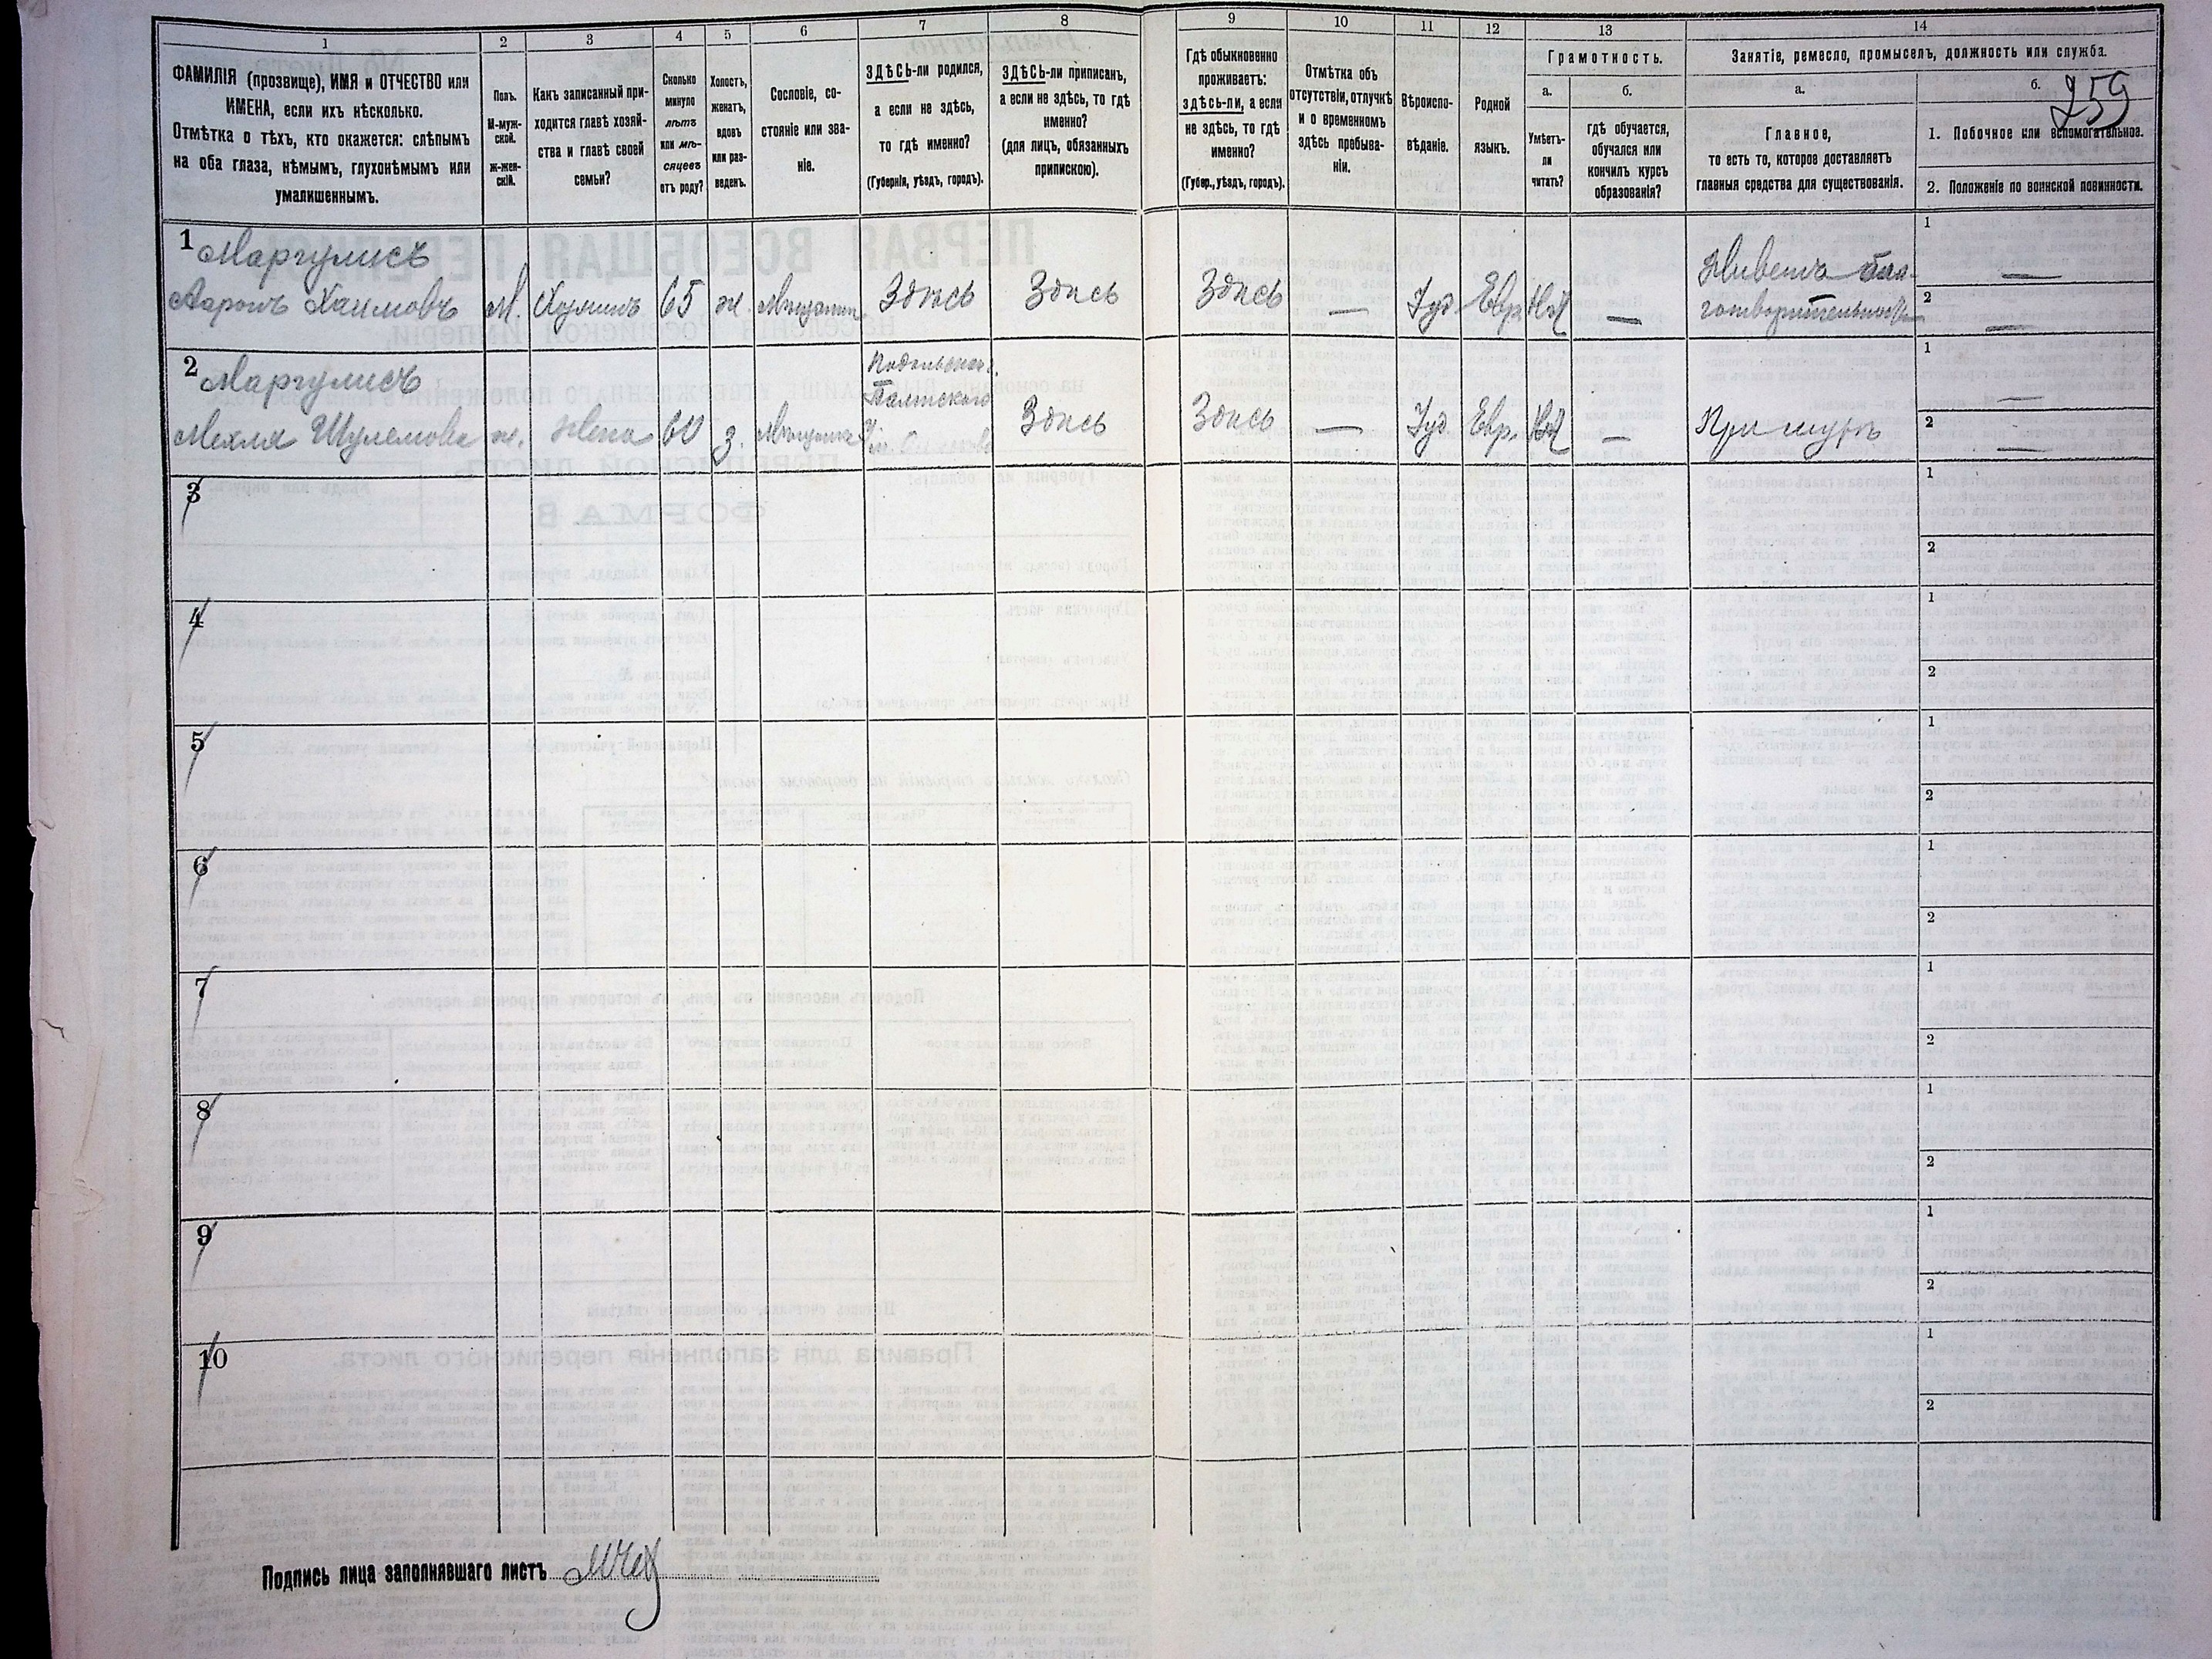 1
2
3
4
5
6
7
8
9
10
11
12
13
14
ФАМИЛІЯ (прозвище), ИМЯ и ОТЧЕСТВО или
ИМЕНА, если ихъ нѣсколько.
Отмѣтка о тѣхъ, кто окажется: слѣпымъ
на оба глаза, нѣмымъ, глухонѣмымъ или
умалишеннымъ.
Полъ.
М-муж-
ской.
Ж-жен-
скій.
Какъ записанный при-
ходится главѣ хозяй-
ства и главѣ своей
семьи?
Сколько
минуло
лѣтъ
или мѣ-
сяцевъ
отъ роду?
Холостъ,
женатъ,
вдовъ
или раз-
веденъ.
Сословіе, со-
стояніе или зва-
ніе.
ЗДѢСЬ-ли родился,
а если не здѣсь,
то гдѣ именно?
(Губернія, уѣздъ, городъ).
ЗДѢСЬ-ли приписанъ,
а если не здѣсь, то гдѣ
именно?
(для лицъ, обязанныхъ
припискою).
Гдѣ обыкновенно
проживаетъ:
здѣсь-ли, а если
не здѣсь, то гдѣ
именно?
(Губер., уѣздъ, городъ).
Отмѣтка объ
отсутствіи, отлучкѣ
и о временномъ
здѣсь пребыва-
ніи.
Вѣроиспо-
вѣданіе.
Родной
языкъ.
Грамотность.
а.
Умѣетъ-
ли
читать?
б.
гдѣ обучается,
обучался или
кончилъ курсъ
образованія?
Занятіе, ремесло, промыселъ, должность или служба.
а.
Главное,
то есть то, которое доставляетъ
главныя средства для существованія.
б.
259
1. Побочное или вспомогательное.
2. Положеніе по воинской повинности.
1 Маргулисъ
Ааронъ Хаимовъ
М.
Хозяинъ
65
ж.
Мѣщанин
Здѣсь
Здѣсь
Здѣсь
—
Іуд
Евр
Нѣт
—
Живетъ бла-
готворительностью
1
—
2
—
2 Маргулисъ
Мехля Шулемова
ж.
Жена
60
з.
Мѣщанка
Подольская г.
Балтского
Здѣсь
Здѣсь
—
Іуд
Евр.
Нѣт
—
При мужѣ
1
—
2
—
3
1
2
4
1
2
5
1
2
6
1
2
7
1
2
8
1
2
9
1
2
10
1
2
Подпись лица заполнявшаго листъ